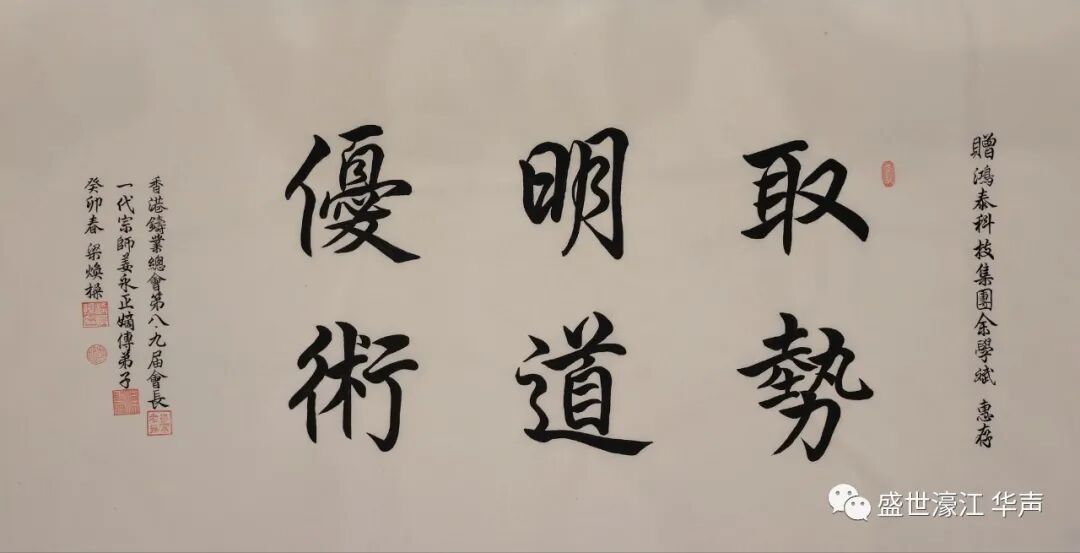 贈鴻泰科技集團余學斌 惠存
取勢
明道
優術
香港鑄業總會第八·九届會長
一代宗師姜永正嫡傳弟子
癸卯春 梁煥操
盛世濠江 华声